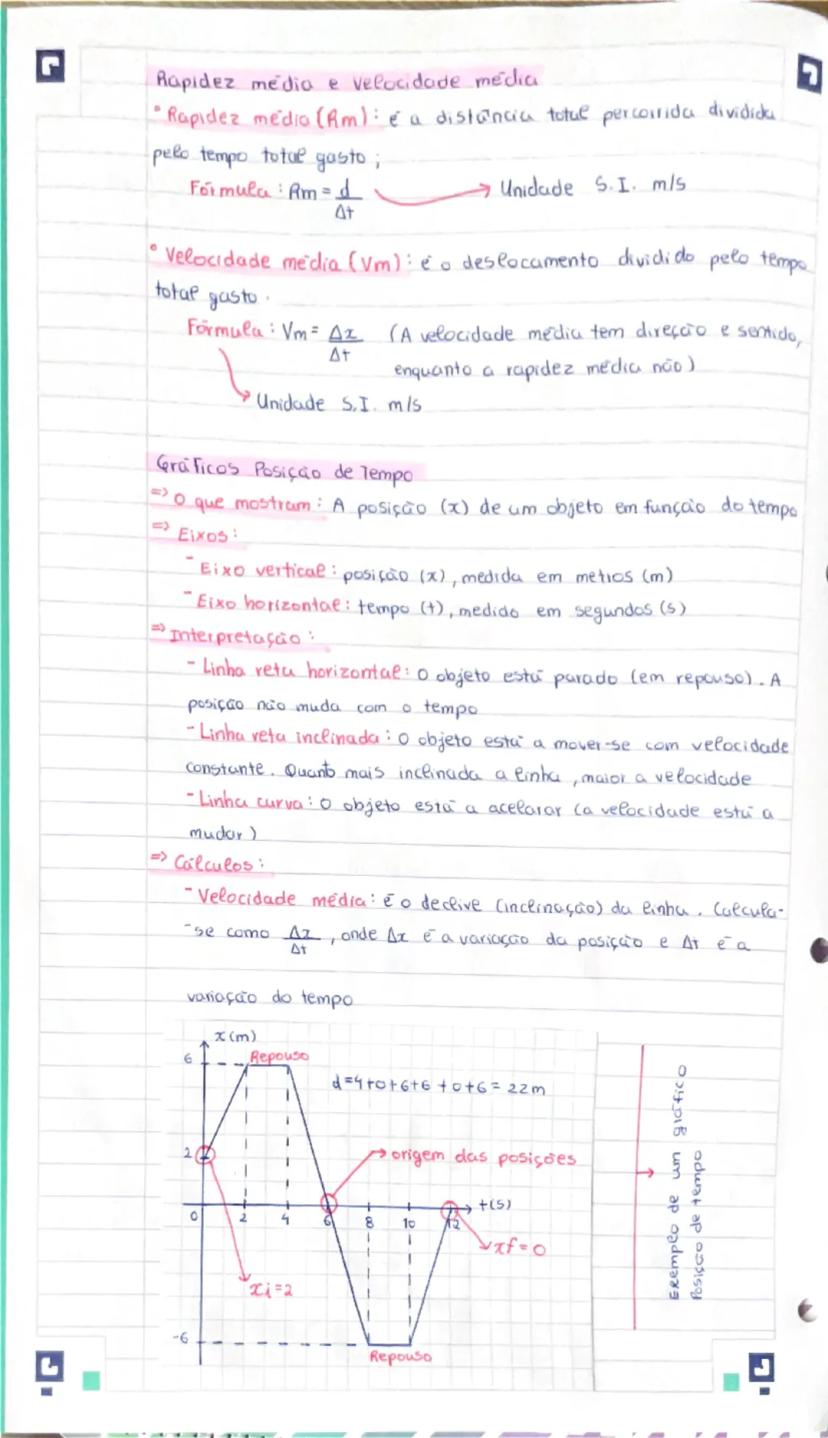 Rapidez média e velocidade média
° Rapidez média (Rm): é a distância total percorrida dividida
pelo tempo total gasto;
Fórmula: Rm = d/Δt → Unidade S.I. m/s
° Velocidade média (Vm): é o deslocamento dividido pelo tempo
total gasto.
Fórmula: Vm = Δx/Δt (A velocidade média tem direção e sentido,
enquanto a rapidez média não)
Unidade S.I. m/s
Gráficos Posição de Tempo
=> O que mostram: A posição (x) de um objeto em função do tempo
=> Eixos:
- Eixo vertical: posição (x), medida em metros (m)
- Eixo horizontal: tempo (t), medido em segundos (s)
=> Interpretação:
- Linha reta horizontal: O objeto está parado (em repouso). A
posição não muda com o tempo
- Linha reta inclinada: O objeto está a mover-se com velocidade
constante. Quanto mais inclinada a linha, maior a velocidade
- Linha curva: O objeto está a acelarar (a velocidade está a
mudar)
=> Cálculos:
- Velocidade média: é o declive (inclinação) da linha. Calcula-
-se como Δx/Δt, onde Δx é a variação da posição e Δt é a
variação do tempo
x(m)
6
Repouso
d=4+0+6+6+0+6=22m
2
origem das posições
0 2 4 6 8 10 12
t(s)
xf=0
xi=2
-6
Repouso
Exemplo de um gráfico
Posição de tempo